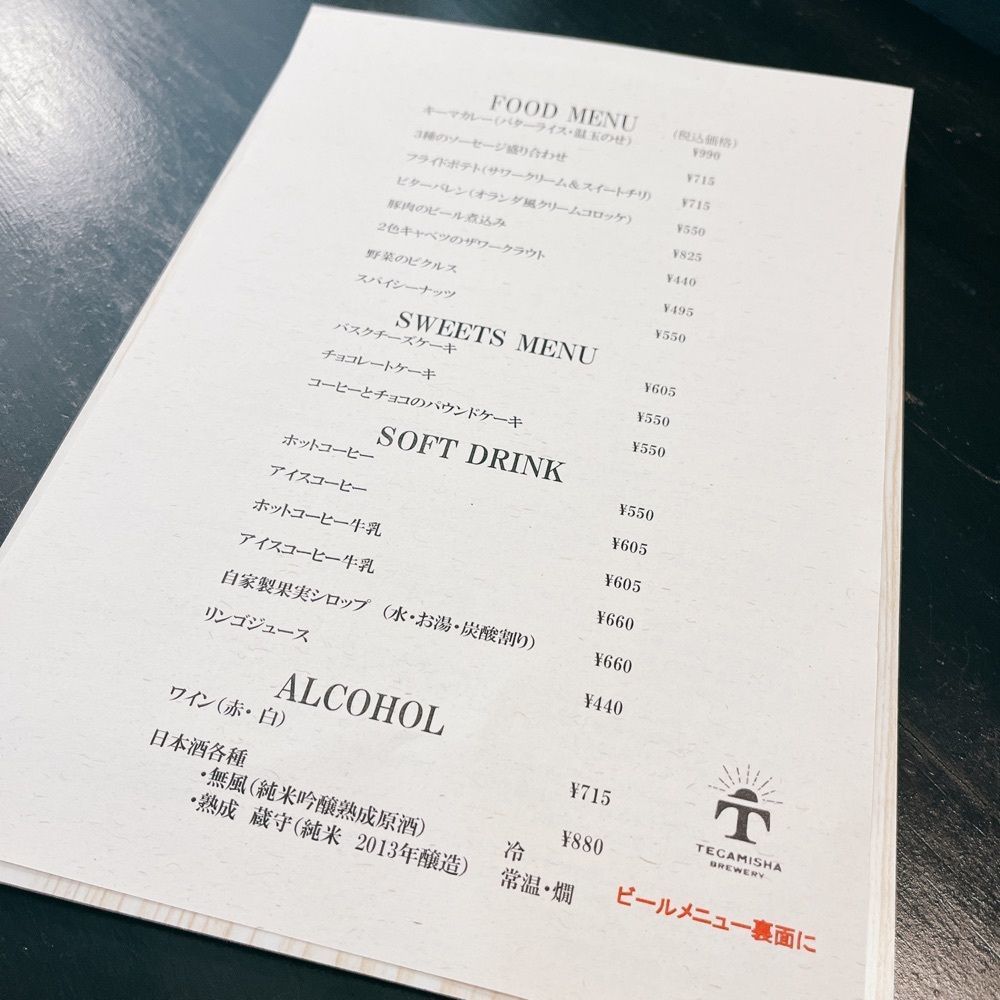 FOOD MENU
(税込価格)
キーマカレー(バターライス・温玉のせ) ¥990
3種のソーセージ盛り合わせ ¥715
フライドポテト(サワークリーム&スイートチリ) ¥715
ビターバレン(オランダ風クリームコロッケ) ¥550
豚肉のビール煮込み ¥825
2色キャベツのザワークラウト ¥440
野菜のピクルス ¥495
スパイシーナッツ ¥550
SWEETS MENU
バスクチーズケーキ ¥605
チョコレートケーキ ¥550
コーヒーとチョコのパウンドケーキ ¥550
SOFT DRINK
ホットコーヒー ¥550
アイスコーヒー ¥605
ホットコーヒー牛乳 ¥605
アイスコーヒー牛乳 ¥660
自家製果実シロップ (水・お湯・炭酸割り) ¥660
リンゴジュース ¥440
ALCOHOL
ワイン(赤・白) ¥715
日本酒各種 ¥880
・無風(純米吟醸熟成原酒) 冷
・熟成 蔵守(純米 2013年醸造) 常温・燗
TEGAMISHA
BREWERY
ビールメニュー裏面に